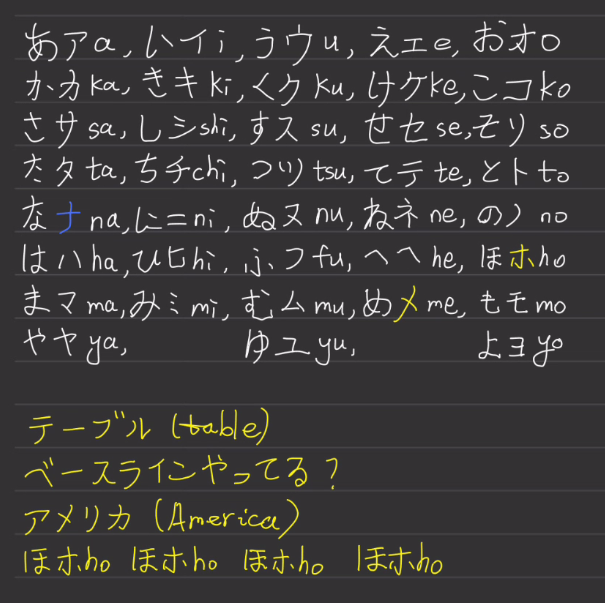 あアa, いイi, うウu, えエe, おオo
かカka, きキki, くクku, けケke, こコko
さサsa, しシshi, すスsu, せセse, そソso
たタta, ちチchi, つツtsu, てテte, とトto
なナna, にニni, ぬヌnu, ねネne, のノno
はハha, ひヒhi, ふフfu, へヘhe, ほホho
まマma, みミmi, むムmu, めメme, もモmo
やヤya, ゆユyu, よヨyo
テーブル (table)
ベースラインやってる?
アメリカ (America)
ほホho ほホho ほホho ほホho